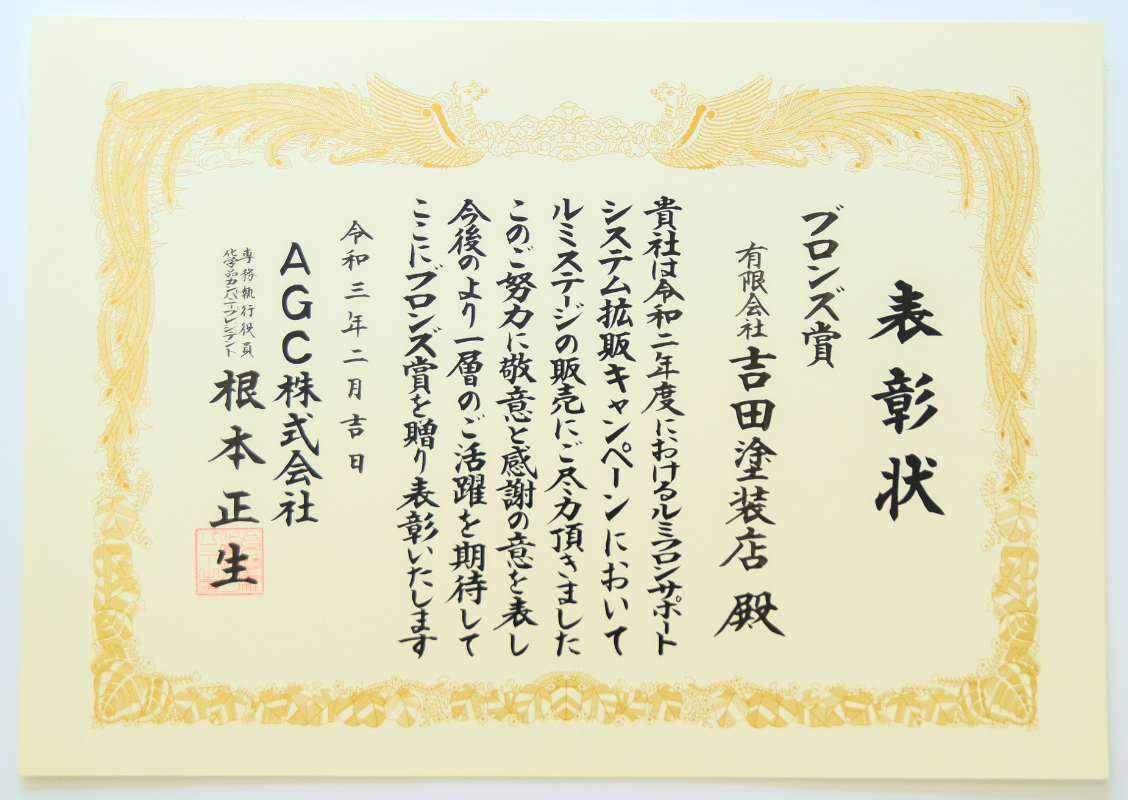 表彰状
ブロンズ賞
有限会社 吉田塗装店 殿
貴社は令和二年度におけるルミフロンサポート
システム拡販キャンペーンにおいて
ルミステージの販売にご尽力頂きました
このご努力に敬意と感謝の意を表し
今後のより一層のご活躍を期待して
ここにブロンズ賞を贈り表彰いたします
令和三年二月吉日
AGC株式会社
専務執行役員
化学品カンパニープレジデント
根本正生